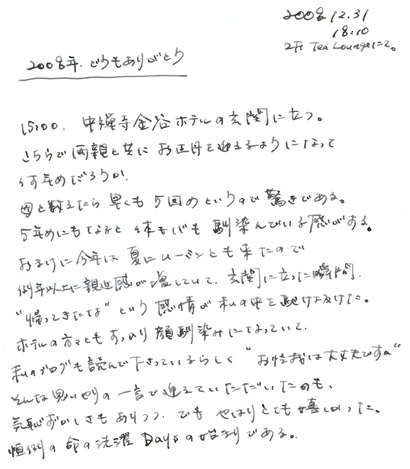 2008.12.31
18:10
2F Tea Loungeにて。
2008年.どうもありがとう
15:00. 中禅寺金谷ホテルの玄関に立つ。
こちらで両親と共に お正月を迎えるようになって
何年めだろうか.
母と数えたら 早くも 5回めというので 驚きである。
5年めにもなると 体も心も 馴染んでいる感がある。
おまけに今年は 夏に ムーミンとも 来たので
例年以上に親近感が増していて. 玄関に立った瞬間.
"帰ってきたな" という 感情が 私の中を 駆け抜けた。
ホテルの方々とも すっかり 顔馴染みになっていて.
私のブログも読んで下さっているらしく "お怪我は大丈夫ですか"
そんな 思いやりの 一言で 迎えていただいたのも.
気恥ずかしさもありつつ. でも やはりとても嬉しかった。
恒例の 命の洗濯 Daysの始まりである。